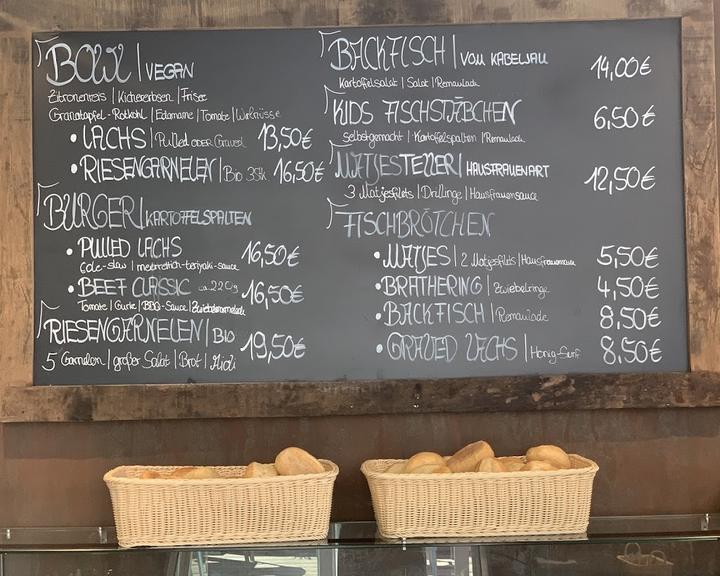 BOWL | VEGAN
Zitronenreis | Kichererbsen | Frisee
Granatapfel-Rotkohl | Edamame | Tomate | Walnüsse
• LACHS | Pulled oder Graved 13,50€
• RIESENGARNELEN | Bio 3Stk 16,50€
BURGER | KARTOFFELSPALTEN
• PULLED LACHS 16,50€
Cole-slaw | meerrettich-teriyaki-sauce
• BEEF CLASSIC ca. 220g 16,50€
Tomate | Gurke | BBQ-Sauce | Zwiebelmarmelade
RIESENGARNELEN | BIO 19,50€
5 Garnelen | großer Salat | Brot | Aioli
BACKFISCH | VOM KABELJAU 14,00€
Kartoffelsalat | Salat | Remoulade
KIDS FISCHSTÄBCHEN 6,50€
selbstgemacht | Kartoffelspalten | Remoulade
MATJESTELLER | HAUSFRAUENART 12,50€
3 Matjesfilets | Drillinge | Hausfrauensauce
FISCHBRÖTCHEN
• MATJES | 2 Matjesfilets | Hausfrauensauce 5,50€
• BRATHERING | Zwiebelringe 4,50€
• BACKFISCH | Remoulade 8,50€
• GRAVED LACHS | Honig-Senf 8,50€